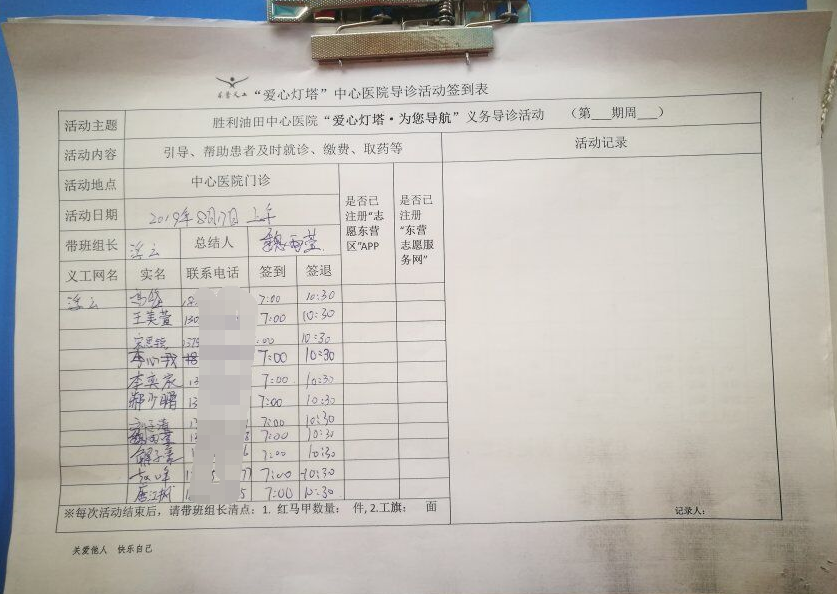 东营义工
“爱心灯塔”中心医院导诊活动签到表
活动主题 胜利油田中心医院“爱心灯塔·为您导航”义务导诊活动 （第___期周___）
活动内容 引导、帮助患者及时就诊、缴费、取药等 活动记录
活动地点 中心医院门诊
是否已注册“志愿东营区”APP
是否已注册“东营志愿服务网”
活动日期 2019年8月17日 上午
带班组长 浮云 总结人 魏雨萱
义工网名 实名 联系电话 签到 签退
浮云 18 7:00 10:30
王美萱 130 7:00 10:30
1379 :00 10:30
7:00 10:30
李奕宸 13 7:00 10:30
郑少曙 13 7:00 10:30
7:00 10:30
魏雨萱 7:00 10:30
7:00 10:30
7:00 10:30
唐江城 7:00 10:30
※每次活动结束后，请带班组长清点：1. 红马甲数量： 件, 2.工旗： 面
记录人：
关爱他人 快乐自己